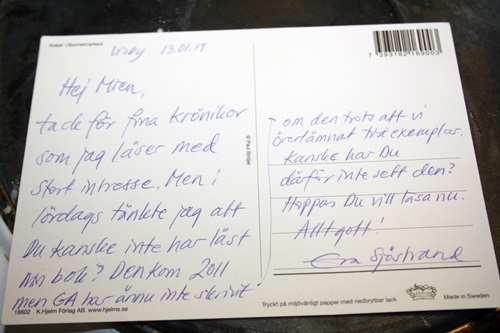 Visby 13.01.14
Hej Mien,
tack för fina krönikor
som jag läser med
stort intresse. Men i
lördags tänkte jag att
Du kanske inte har läst
min bok? Den kom 2011
men GA har ännu inte skrivit
om den trots att vi
överlämnat två exemplar.
Kanske har Du
därför inte sett den?
Hoppas Du vill läsa nu.
Allt gott!
Eva Sjöstrand
© Paul Ströger
7 393182 166003
16602 K.Hjelm Förlag AB. www.hjelms.se
Tryckt på miljövänligt papper med nedbrytbar lack.
Made in Sweden